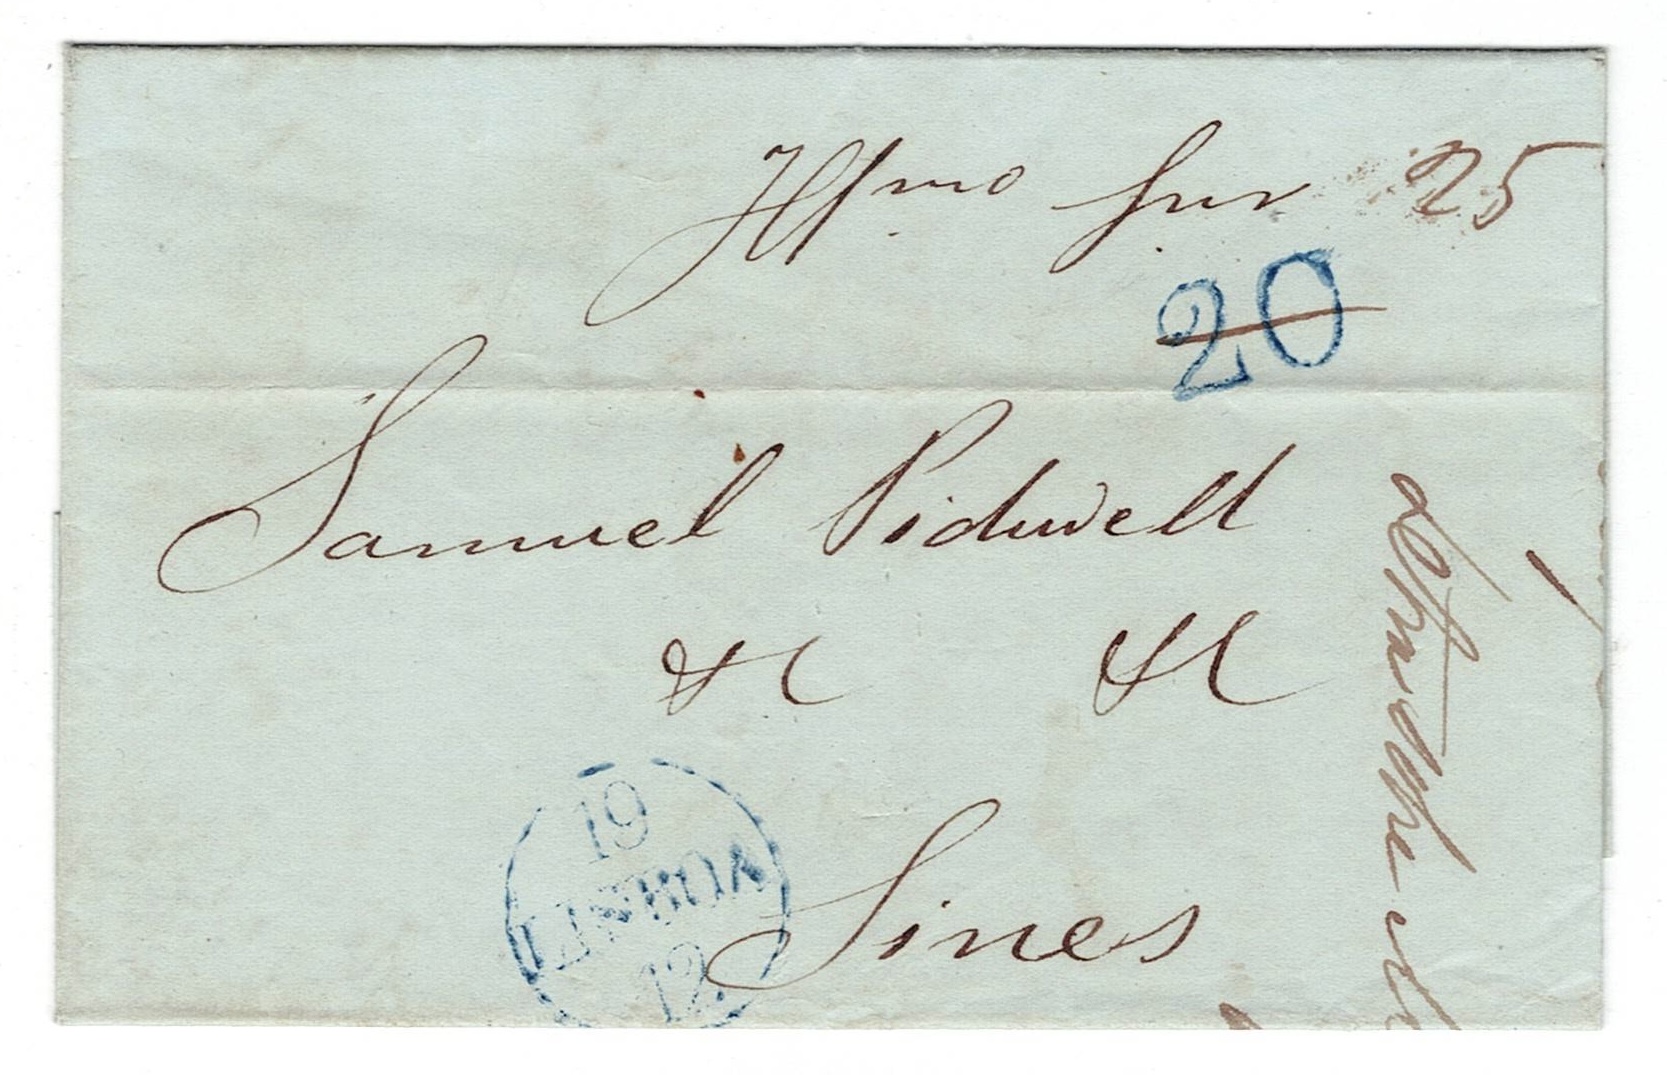 Illmo Snr 25
20
Samuel Pidwell
&c &c
Sines
19
LISBOA
12